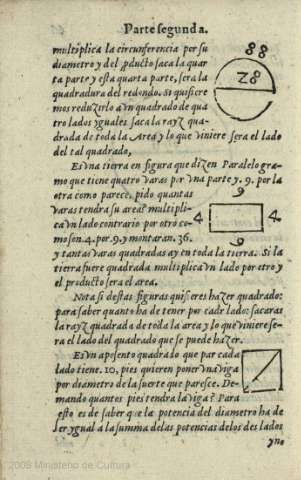 Parte segunda.
multiplica la circunferencia por su
diametro y del producto saca la quar
ta parte y esta quarta parte, sera la
quadradura del redondo. Si quisiere
mos reduzirlo a vn quadrado de qua
tro lados yguales saca la rayz qua-
drada de toda la Area y lo que viniere sera el lado
del tal quadrado,
88
28
Es vna tierra en figura que dizen Paralelo gra-
mo que tiene quatro varas por vna parte y. 9. por la
otra como parece. pido quantas
varas tendra su area? multipli-
ca vn lado contrario por otro co-
mo son. 4. por. 9. y montaran. 36.
y tantas varas quadradas ay en toda la tierra. Si la
tierra fuere quadrada multiplica vn lado por otro y
el producto sera el area.
9
4 4
9
Nota si destas figuras quisieres hazer quadrado:
para saber quanto ha de tener por cada lado: sacaras
la rayz quadrada de toda la area y lo que viniere se-
ra el lado del quadrado que se puede hazer.
Es vn aposento quadrado que por cada
lado tiene. 10. pies quieren poner vna viga
por diametro de la suerte que paresce. De-
mando quantos pies tendra la viga? Para
esto es de saber que la potencia del diametro ha de
ser ygual a la summa de las potencias de los dos lados
yno
2009 Ministerio de Cultura